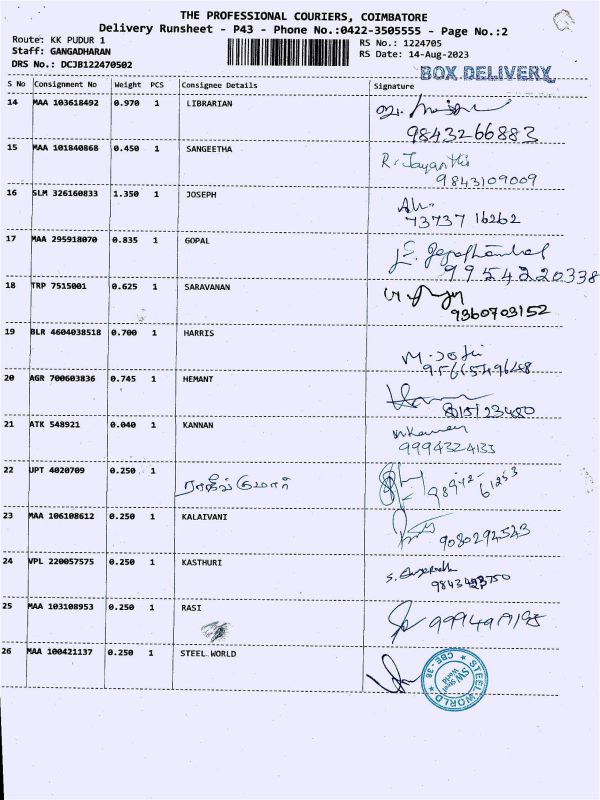 THE PROFESSIONAL COURIERS, COIMBATORE
Delivery Runsheet - P43 - Phone No.:0422-3505555 - Page No.:2
Route: KK PUDUR 1
RS No.: 1224705
Staff: GANGADHARAN
RS Date: 14-Aug-2023
DRS No.: DCJB122470502
BOX DELIVERY
S No Consignment No Weight PCS Consignee Details Signature
14 MAA 103618492 0.970 1 LIBRARIAN
9843266883
15 MAA 101840868 0.450 1 SANGEETHA R. Jayanthi
9843109009
16 SLM 326160833 1.350 1 JOSEPH
73737 16262
17 MAA 295918070 0.835 1 GOPAL
9954220338
18 TRP 7515001 0.625 1 SARAVANAN
9360703152
19 BLR 4604038518 0.700 1 HARRIS
M. Joti
20 AGR 700603836 0.745 1 HEMANT
21 ATK 548921 0.040 1 KANNAN
9994324133
22 UPT 4020709 0.250 1
98942-61253
23 MAA 106108612 0.250 1 KALAIVANI
9080292523
24 VPL 220057575 0.250 1 KASTHURI
25 MAA 103108953 0.250 1 RASI
26 MAA 100421137 0.250 1 STEEL WORLD
STEEL WORLD
CBE-38